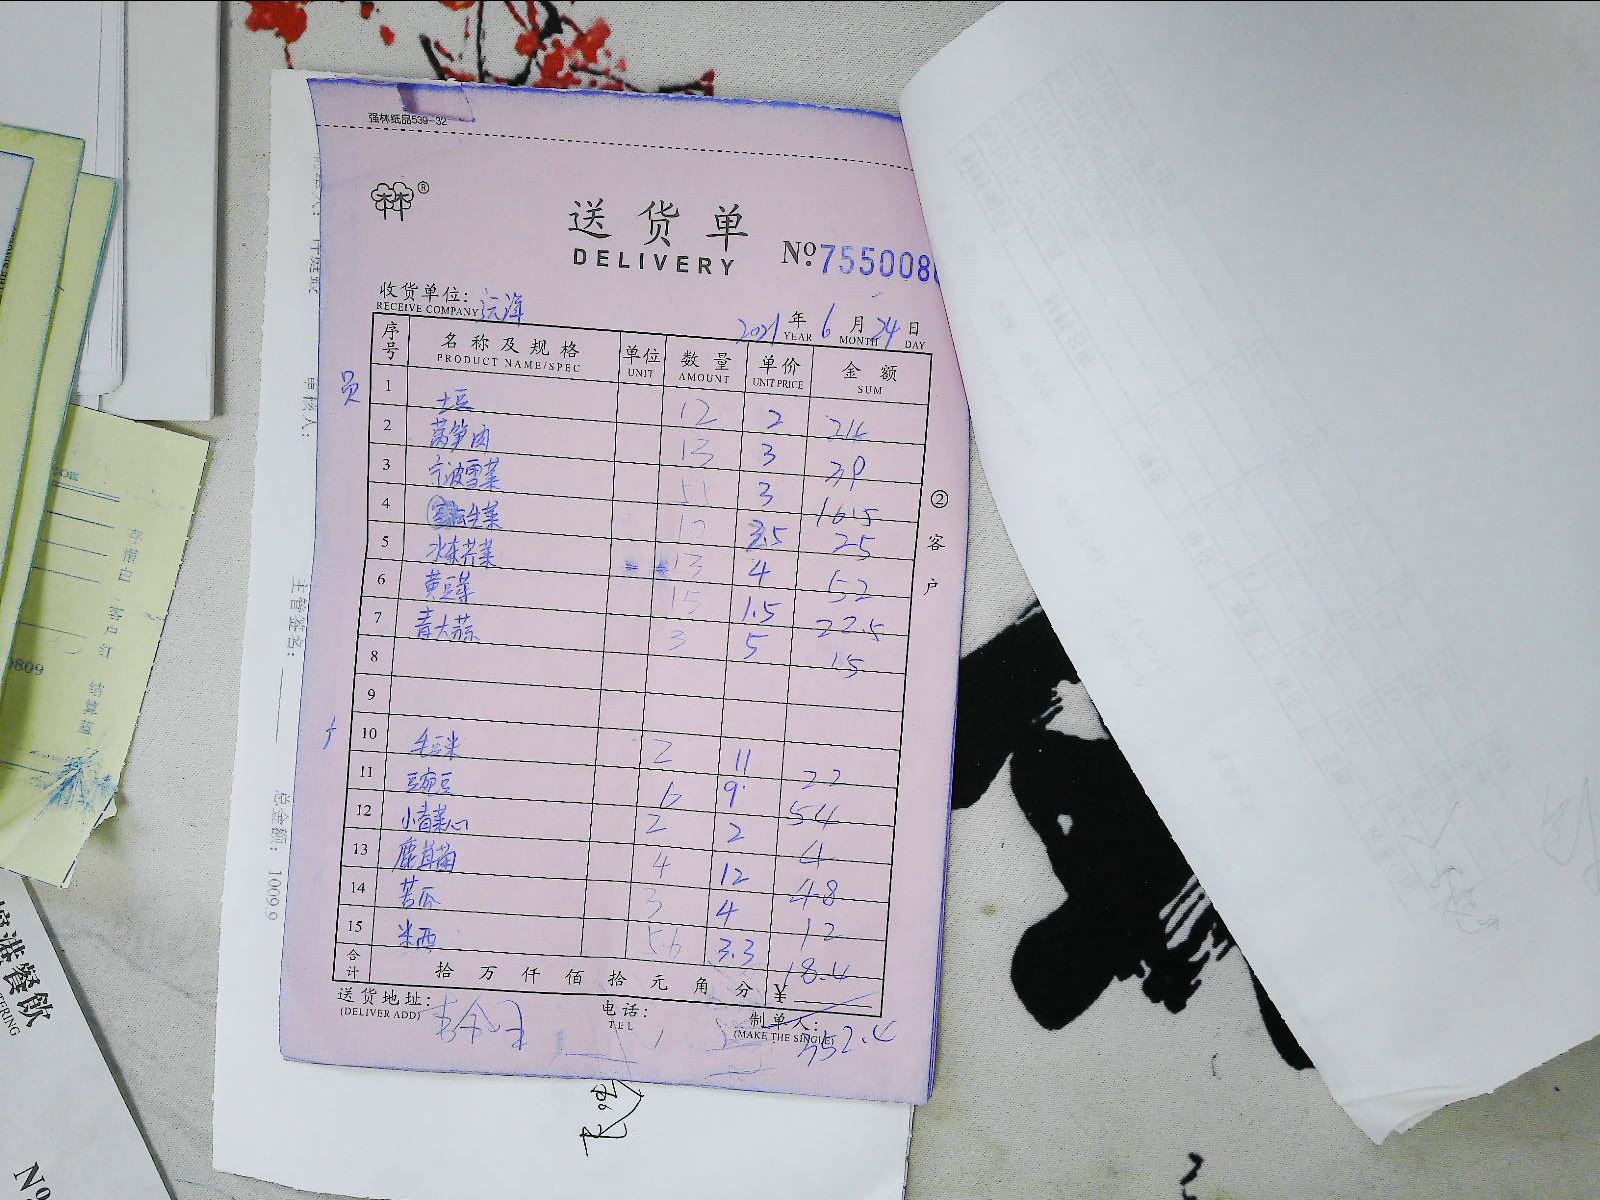 强林纸品539-32
林林®
送货单
DELIVERY
No:755008
收货单位:
RECEIVE COMPANY
2021年6月24日
YEAR MONTH DAY
序号 名称及规格 单位 数量 单价 金额
PRODUCT NAME/SPEC UNIT AMOUNT UNIT PRICE SUM
员
1 土豆 12 2 24
2 莴笋肉 13 3 39
3 宁波雪菜 55 3 165
4 生菜 10 2.5 25
5 水东芥菜 13 4 52
6 黄豆芽 15 1.5 22.5
7 青大蒜 3 5 15
8
9
10 毛豆米 2 11 22
11 豌豆 6 9 54
12 小青菜心 2 2 4
13 鹿茸菌 4 12 48
14 苦瓜 3 4 12
15 米西 5.6 3.3 18.4
合计 拾万仟佰拾元角分 ¥
352.4
送货地址:
(DELIVER ADD)
电话:
TEL
制单人:
(MAKE THE SINGLE)
②客户
审核人:
主管签名:
总金额: 1009.9
0809
结算蓝
餐飲
No